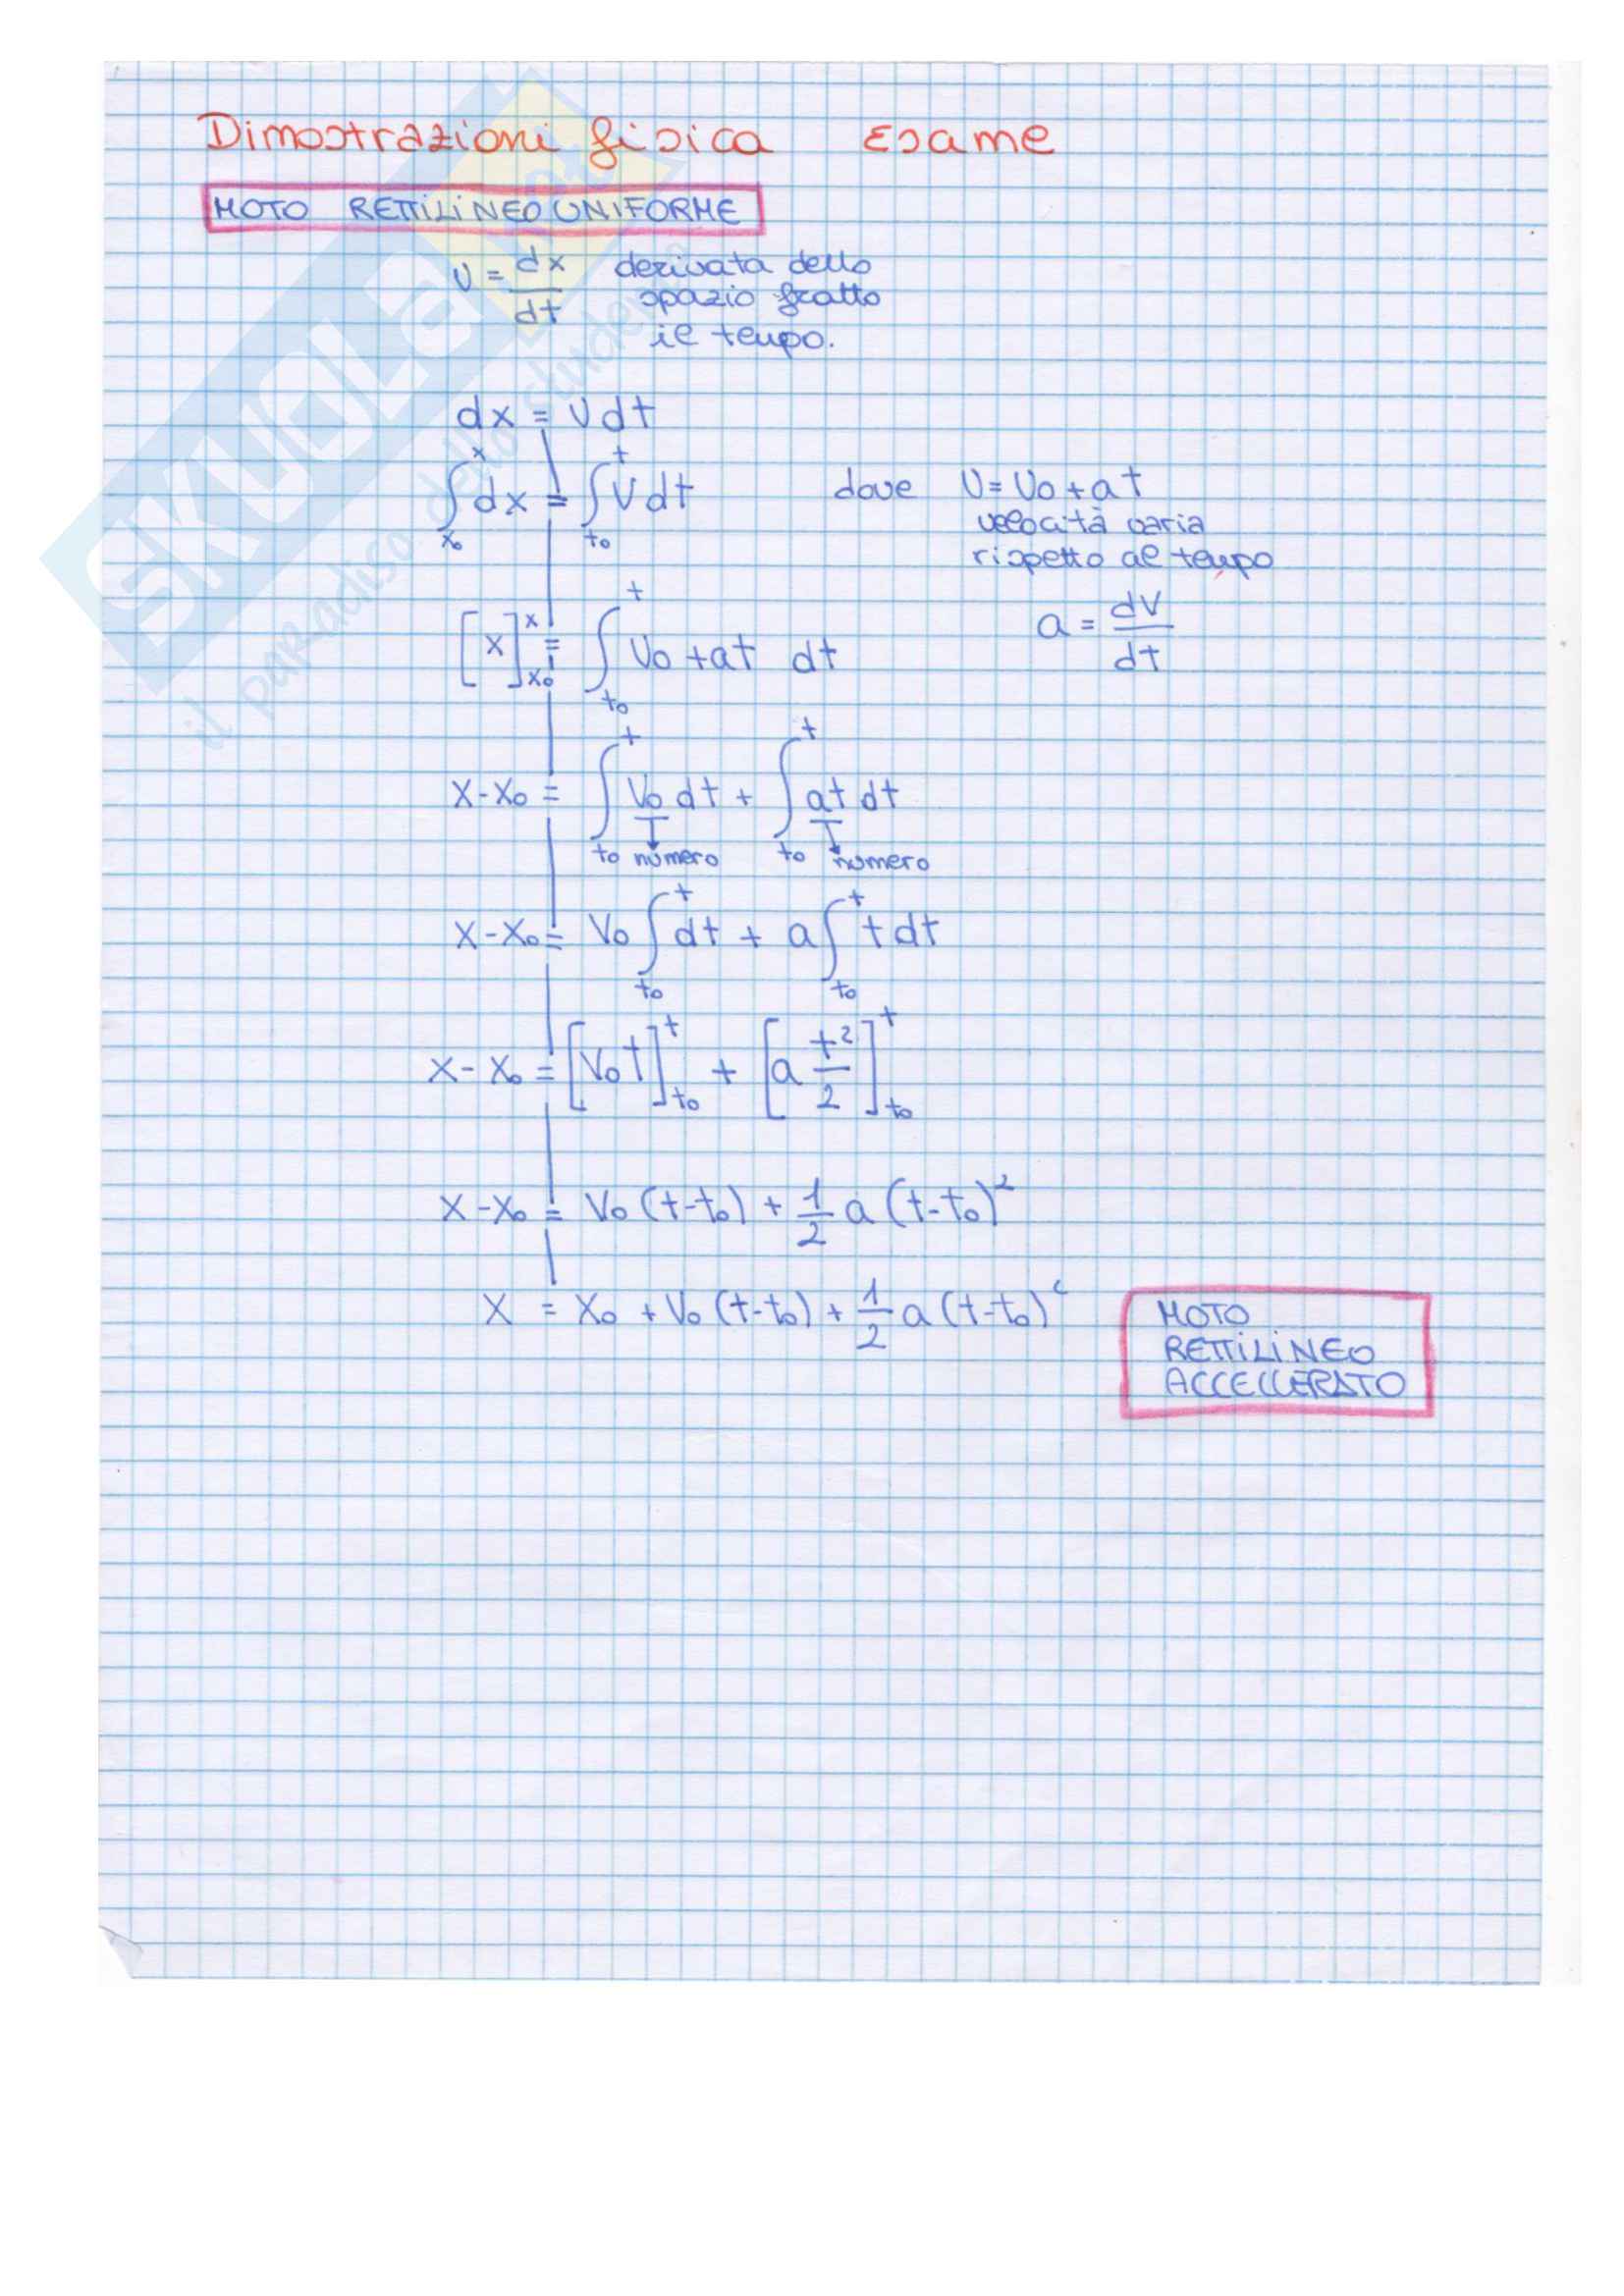 Dimostrazioni fisica Esame
MOTO RETTILINEO UNIFORME
v = dx/dt derivata dello
spazio fratto
il tempo.
dx = v dt
∫_{x₀}^{x} dx = ∫_{t₀}^{t} v dt dove v = v₀ + at
velocità varia
rispetto al tempo
[x]_{x₀}^{x} = ∫_{t₀}^{t} v₀ + at dt a = dv/dt
x - x₀ = ∫_{t₀}^{t} v₀ dt + ∫_{t₀}^{t} at dt
numero numero
x - x₀ = v₀ ∫_{t₀}^{t} dt + a ∫_{t₀}^{t} t dt
x - x₀ = [v₀ t]_{t₀}^{t} + [a t²/2]_{t₀}^{t}
x - x₀ = v₀ (t - t₀) + 1/2 a (t - t₀)²
x = x₀ + v₀ (t - t₀) + 1/2 a (t - t₀)²
MOTO
RETTILINEO
ACCELLERATO
SKUOLA.net
il paradiso dello studente